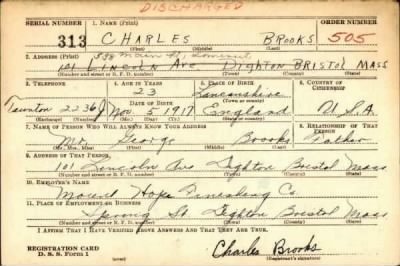 DISCHARGED
SERIAL NUMBER 1. NAME (Print) ORDER NUMBER
313 CHARLES BROOKS 505
(First) (Middle) (Last)
2. ADDRESS (Print) Main St.
101 LINCOLN AVE DIGHTON BRISTOL MASS
(Number and street or R. F. D. number) (Town) (County) (State)
3. TELEPHONE 4. AGE IN YEARS 5. PLACE OF BIRTH 6. COUNTRY OF CITIZENSHIP
23 Lancashire
Taunton 2236 J DATE OF BIRTH (Town or county)
Nov 5 1917 England U.S.A.
(Exchange) (Number) (Mo.) (Day) (Yr.) (State or country)
7. NAME OF PERSON WHO WILL ALWAYS KNOW YOUR ADDRESS 8. RELATIONSHIP OF THAT PERSON
Mr. George Brooks Father
(Mr., Mrs., Miss) (First) (Middle) (Last)
9. ADDRESS OF THAT PERSON
101 Lincoln Ave Dighton Bristol Mass
(Number and street or R. F. D. number) (Town) (County) (State)
10. EMPLOYER'S NAME
Mount Hope Finishing Co.
11. PLACE OF EMPLOYMENT OR BUSINESS
Spring St. Dighton Bristol Mass
(Number and street or R. F. D. number) (Town) (County) (State)
I AFFIRM THAT I HAVE VERIFIED ABOVE ANSWERS AND THAT THEY ARE TRUE.
REGISTRATION CARD
D. S. S. Form 1 Charles Brooks
(Registrant's signature)